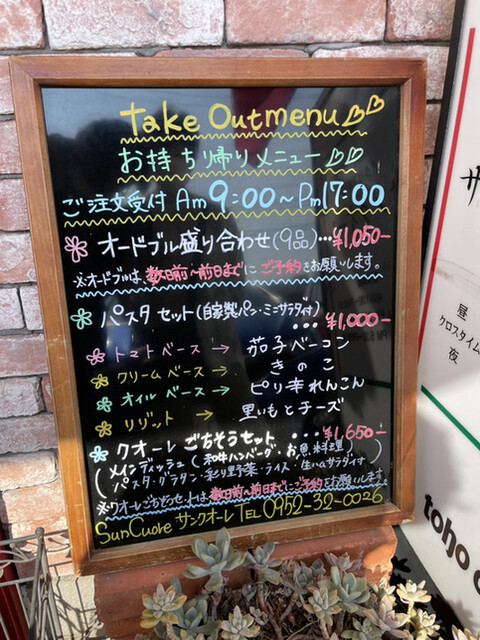 take Outmenu
お持ち帰りメニュー
ご注文受付 Am 9:00～Pm17:00
オードブル盛り合わせ(9品)…¥1,050-
※オードブルは、数日前～前日までにご予約をお願いします。
パスタセット(自家製パン・ミニサラダ付)
…¥1,000-
トマトベース → 茄子ベーコン
クリームベース → きのこ
オイルベース → ピリ辛れんこん
リゾット → 里いもとチーズ
クオーレごちそうセット…¥1,650-
メインディッシュ(和牛ハンバーグ・お魚料理)
パスタ・グラタン・彩り野菜・ライス・生ハムサラダ付
※クオーレごちそうセットは、数日前～前日までにご予約をお願いします
SunCuore サンクオーレ TEL 0952-32-0026
昼
クロスタイム
夜
toho